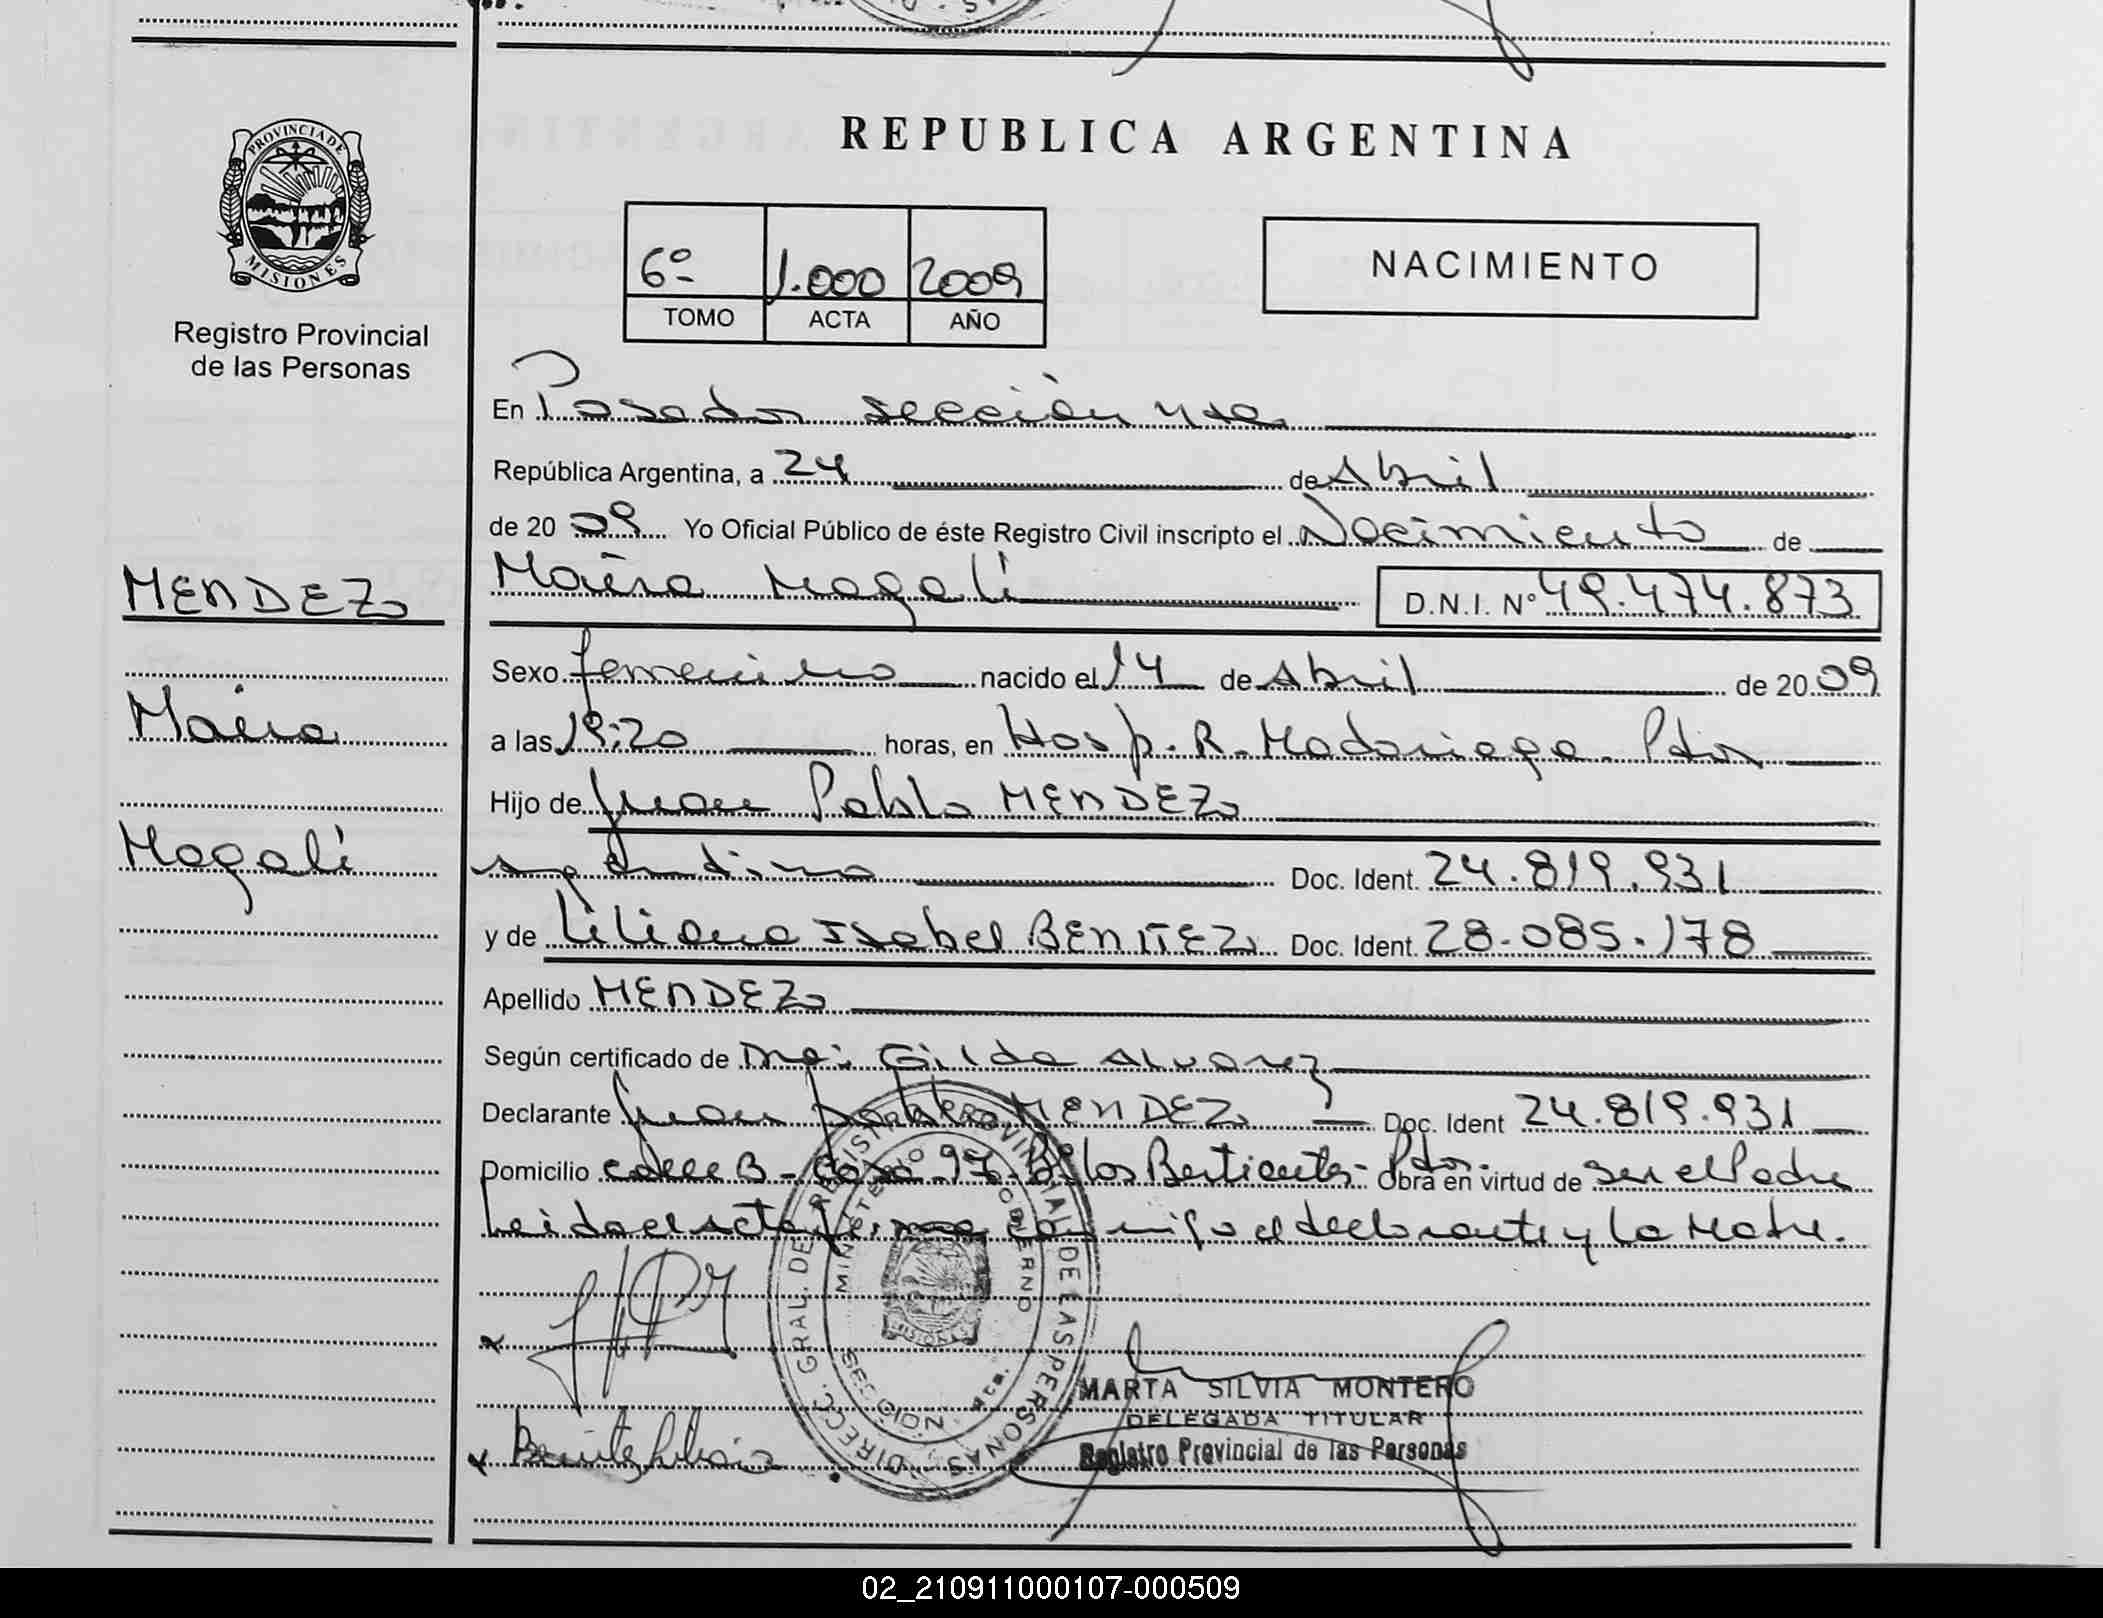 REPUBLICA ARGENTINA
PROVINCIA DE
MISIONES
Registro Provincial
de las Personas
6º 1.000 2009
TOMO ACTA AÑO
NACIMIENTO
En Posadas sección 4ta
República Argentina, a 24 de Abril
de 2009 Yo Oficial Público de éste Registro Civil inscripto el Nacimiento de
MENDEZ
Maira Magalí D.N.I. Nº 49.474.873
Sexo femenino nacido el 14 de Abril de 2009
Maira
a las 19:20 horas, en Hosp. R. Madariaga. Pdas
Hijo de Juan Pablo MENDEZ
Magalí
argentino Doc. Ident. 24.819.931
y de Liliana Isabel BENITEZ Doc. Ident. 28.085.178
Apellido MENDEZ
Según certificado de Dra: Gilda Alvarez
Declarante Juan Pablo MENDEZ Doc. Ident 24.819.931
Domicilio calle B - Casa 97 - Bº los - Pdas. Obra en virtud de ser el Padre
Leida el acta firma conmigo el declarante y la Madre.
DIRECC. GRAL. DE REGISTRO PROVINCIAL DE LAS PERSONAS
MINISTERIO GOBIERNO
SECCION 4ta.
MISIONES
x
x Benitez Liliana
MARTA SILVIA MONTERO
DELEGADA TITULAR
Registro Provincial de las Personas
02_210911000107-000509